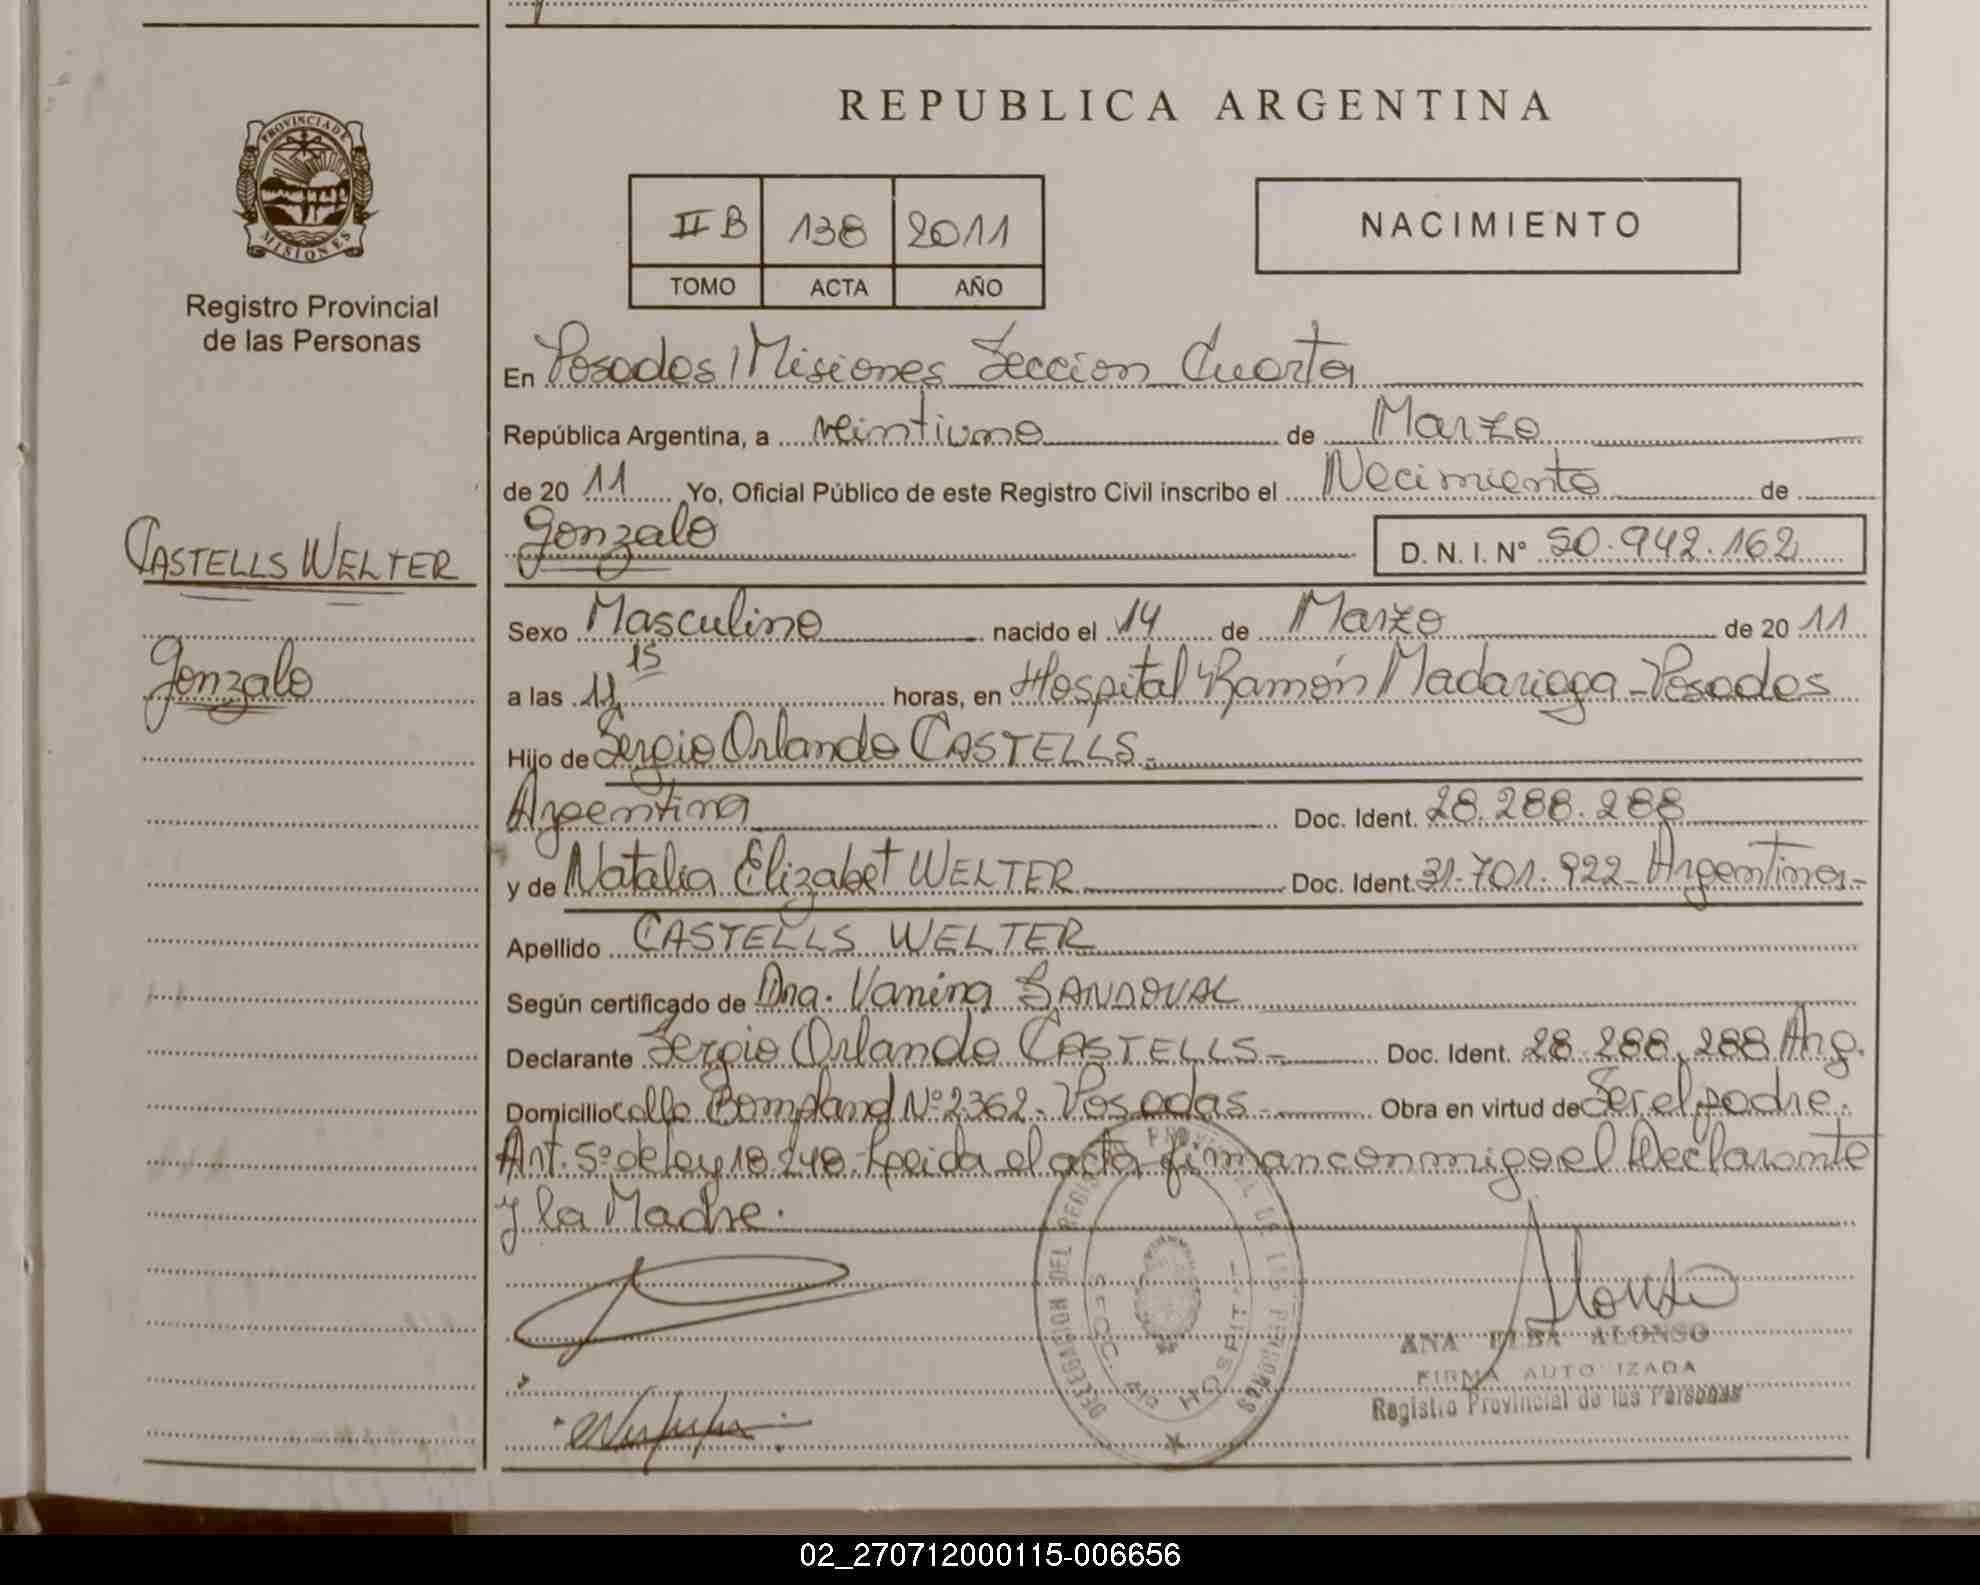 REPUBLICA ARGENTINA
PROVINCIA DE
MISIONES
Registro Provincial
de las Personas
II B 138 2011
TOMO ACTA AÑO
NACIMIENTO
En Posadas, Misiones Seccion Cuarta
República Argentina, a veintiuno de Marzo
de 20 11 Yo, Oficial Público de este Registro Civil inscribo el Nacimiento de
Gonzalo D. N. I. Nº 50.942.162
CASTELLS WELTER
Gonzalo
Sexo Masculino nacido el 14 de Marzo de 20 11
a las 11,15 horas, en Hospital Ramón Madariaga - Posadas
Hijo de Sergio Orlando CASTELLS.
Argentina Doc. Ident. 28.288.288
y de Natalia Elizabet WELTER Doc. Ident. 31.701.922 - Argentina-
Apellido CASTELLS WELTER
Según certificado de Dra. Vanina SANDOVAL
Declarante Sergio Orlando CASTELLS - Doc. Ident. 28.288.288 Arg.
Domicilio calle Bompland Nº 2362. Posadas Obra en virtud de Ser el padre.
Art. 5º de ley 18.248. Leida el acta firman conmigo el Declarante
y la Madre.
DELEGACION DEL REGISTRO PROVINCIAL DE LAS PERSONAS
SECC. 4º HOSPITAL
Alonso
ANA ELBA ALONSO
FIRMA AUTORIZADA
Registro Provincial de las Personas
02_270712000115-006656